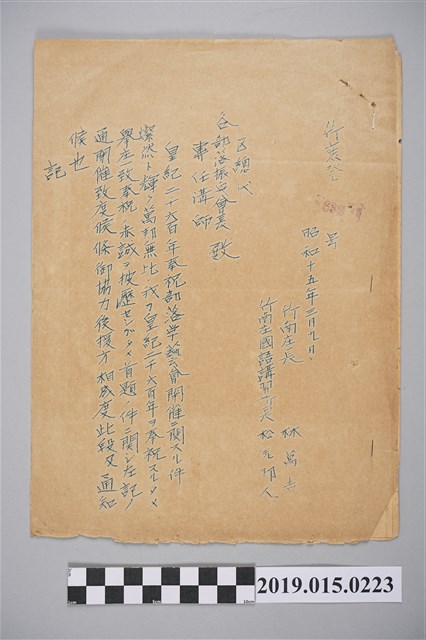 竹庄
号
昭和十五年三月九日
竹南庄長 林
竹南庄國語講習所長
区總代
各部落振興會長
專任講師 致
皇紀二千六百年奉祝部落学藝會開催ニ関スル件
燦然ト輝ク萬邦無比我ヲ皇紀二千六百年ヲ奉祝スルタメ
舉庄致奉祝ノ赤誠ヲ披歴センガタメ首題ノ件ニ関シ左記ノ
通開催致度候條御協力後援方相成度此段及通知
候也
記
2019.015.0223